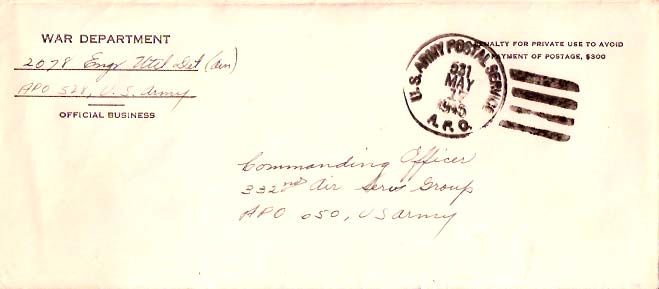 WAR DEPARTMENT
2078 Engr Util Det (Avn)
APO 528, U.S. Army
OFFICIAL BUSINESS
PENALTY FOR PRIVATE USE TO AVOID
PAYMENT OF POSTAGE, $300
U.S. ARMY POSTAL SERVICE
A.P.O.
MAY
1945
Commanding Officer
332nd Air Serv Group
APO 650, US Army